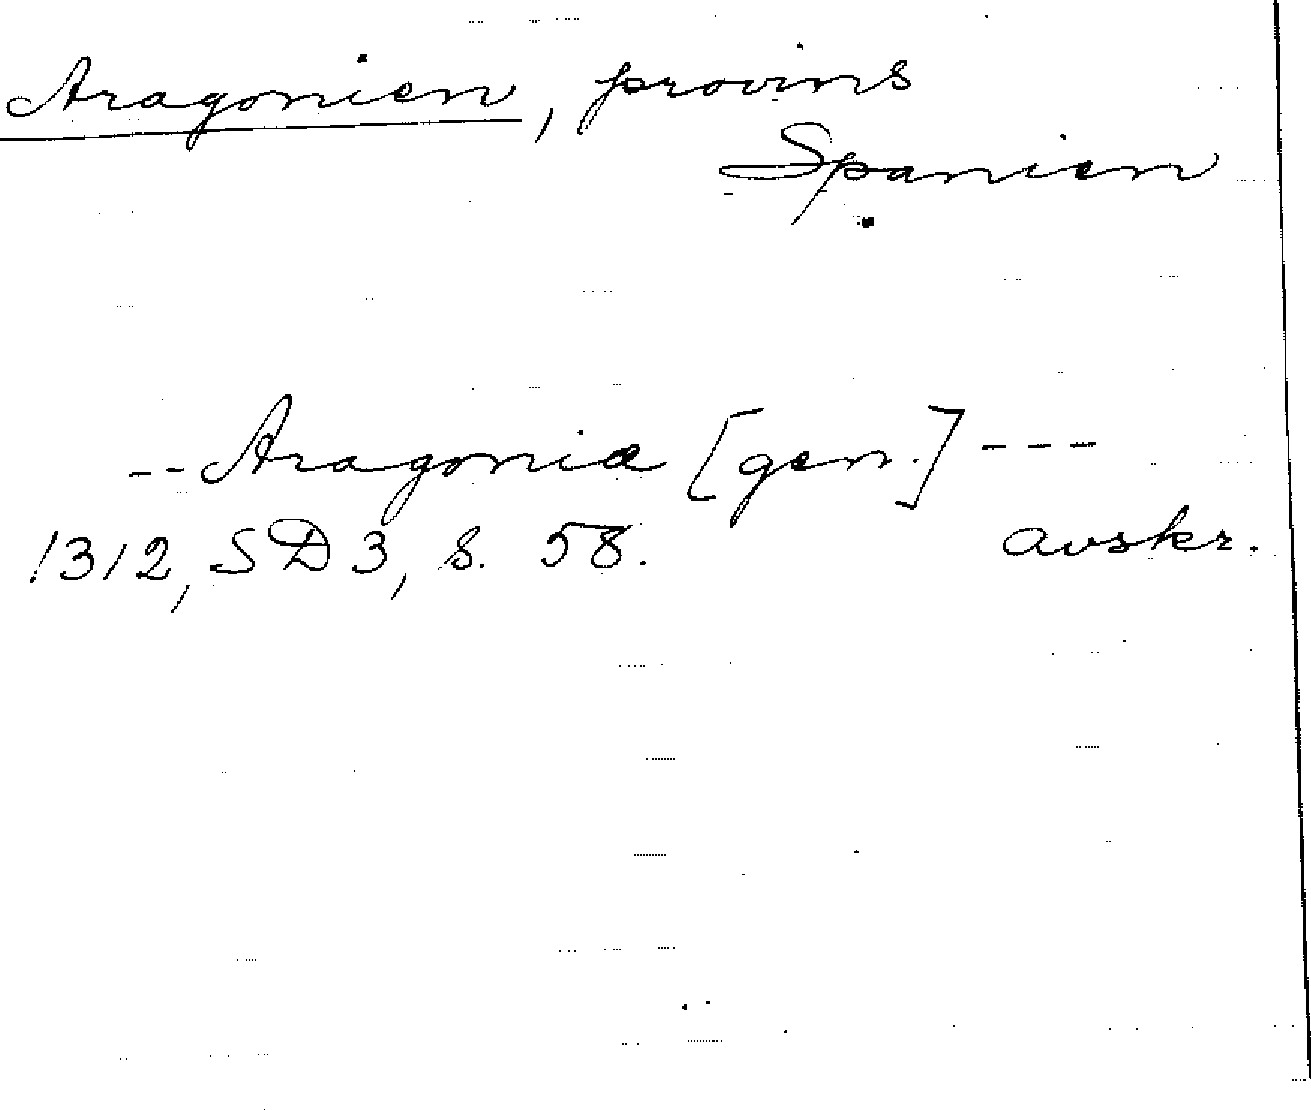 Aragonien, provins
Spanien
-- Aragonia [gen.] ---
1312, SD 3, s. 58.
avskr.